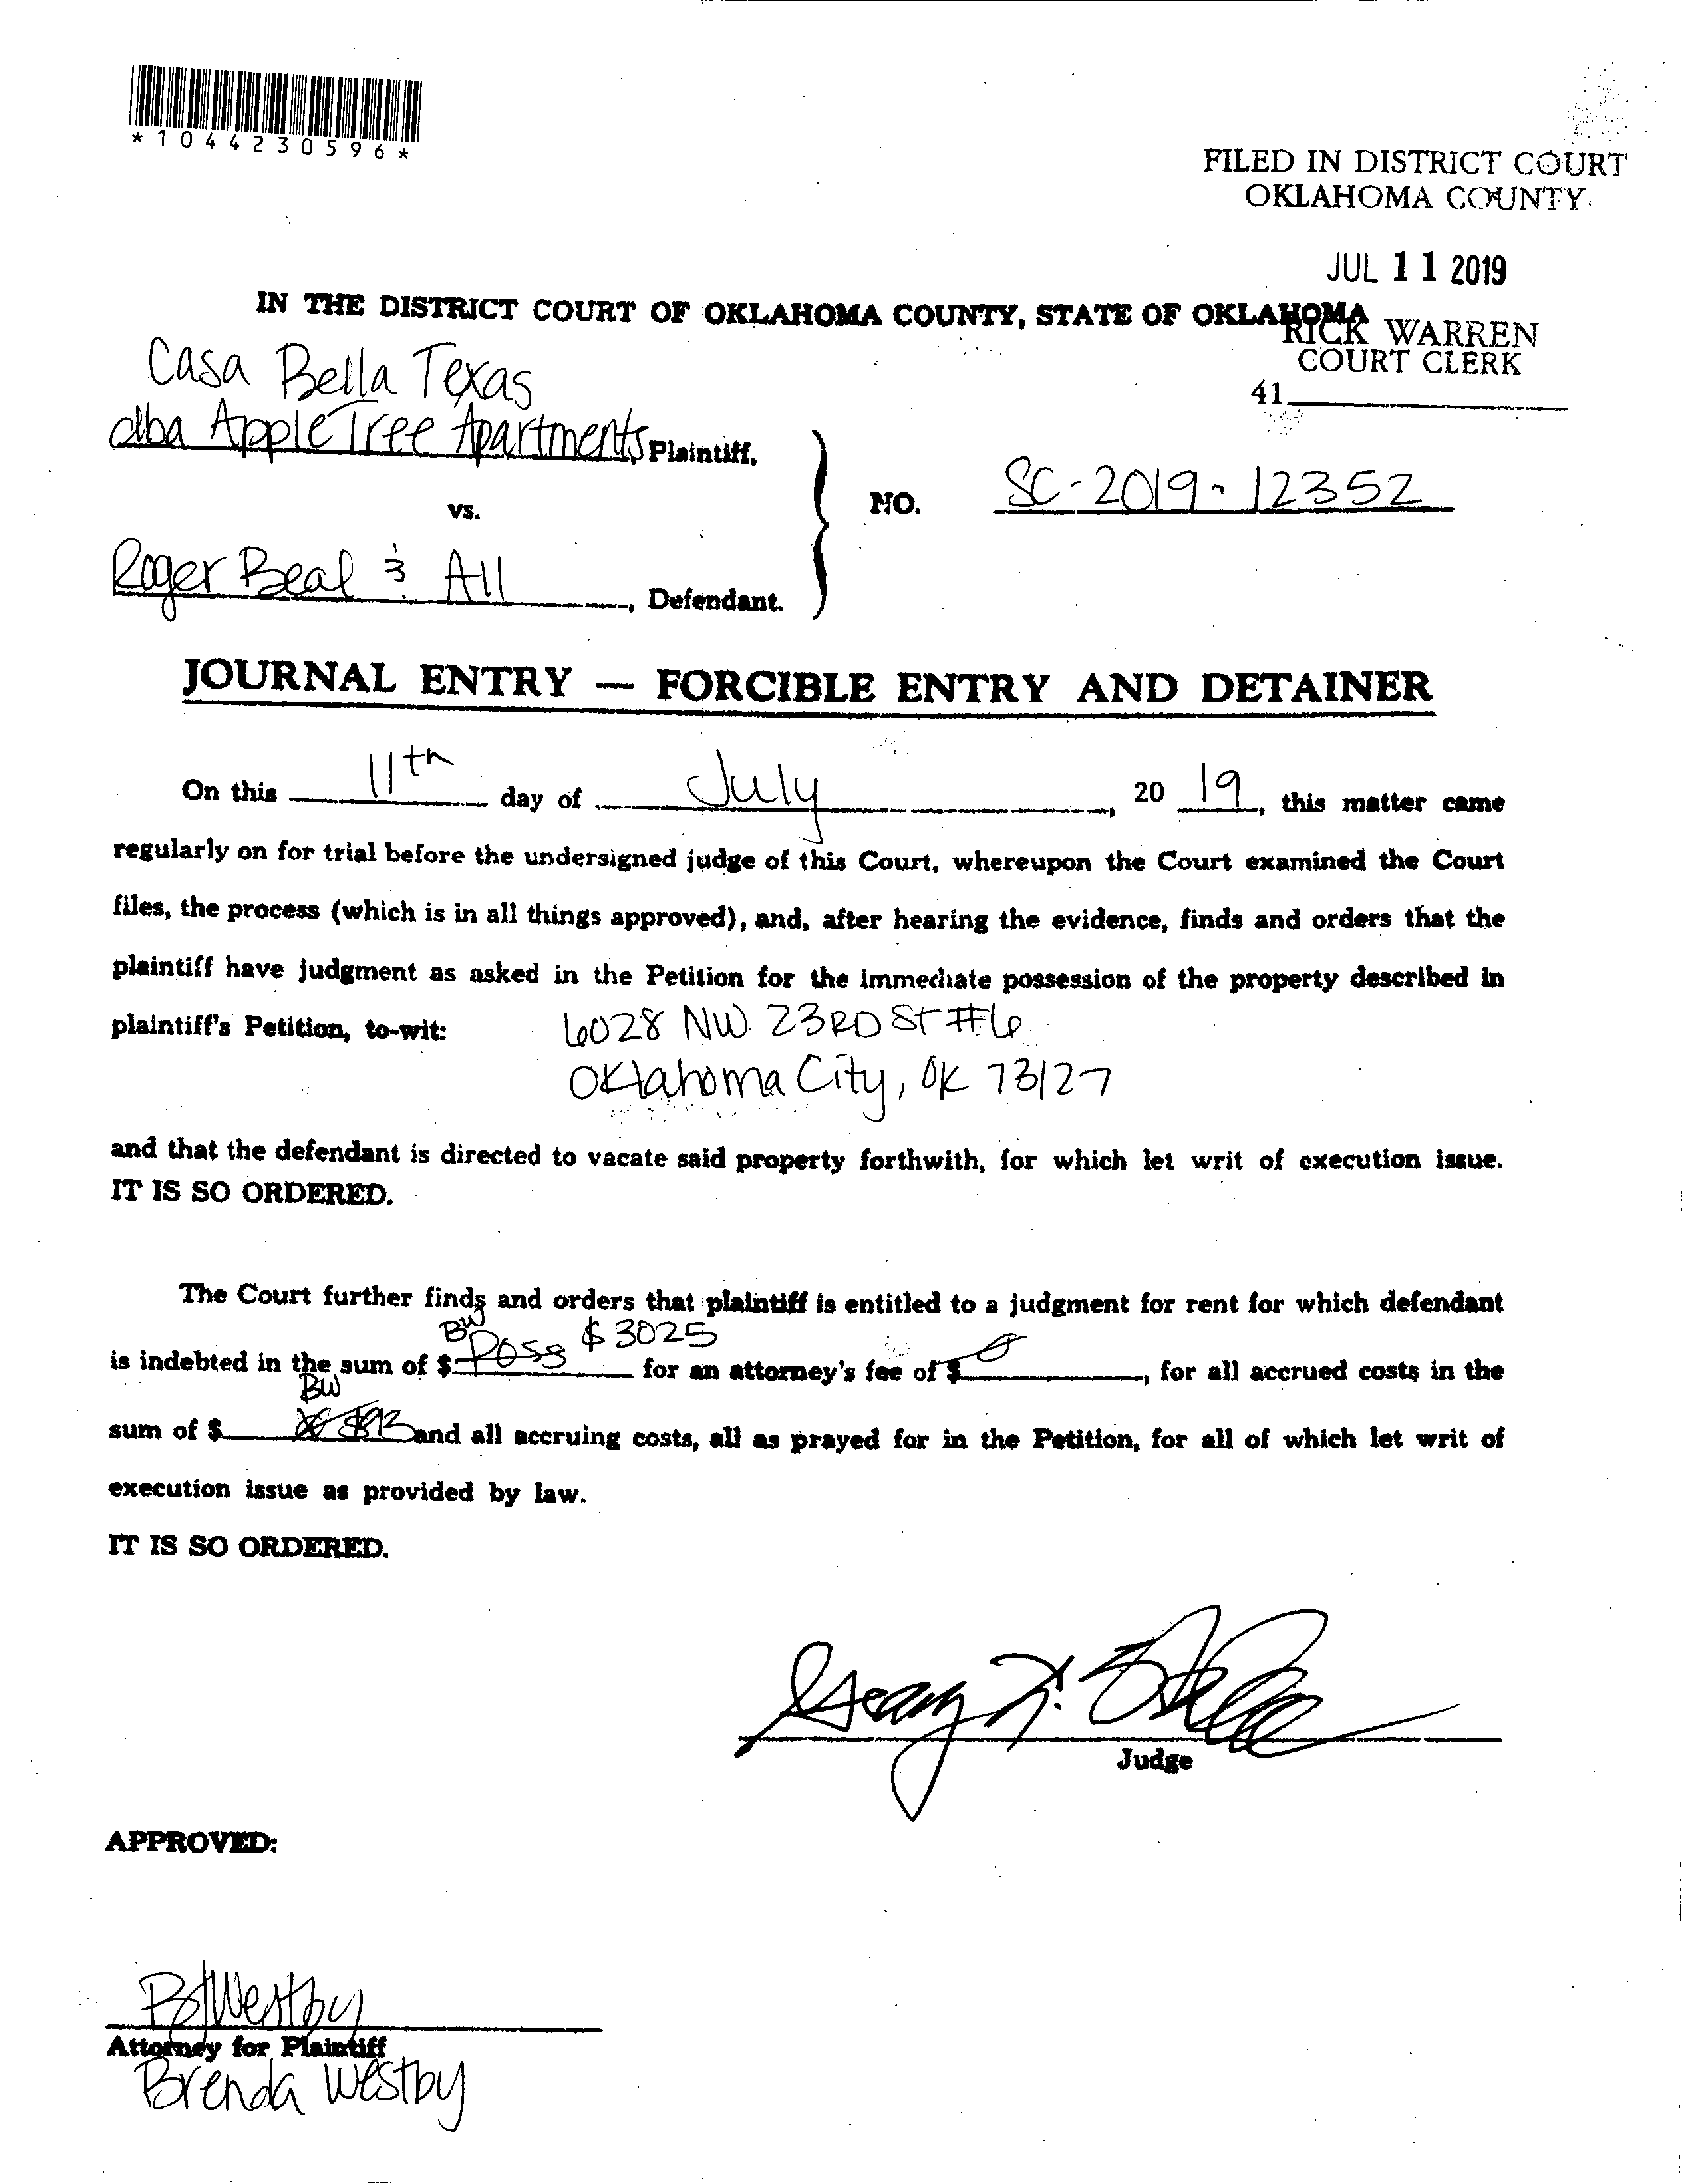 *1044230596*
FILED IN DISTRICT COURT
OKLAHOMA COUNTY
JUL 11 2019
IN THE DISTRICT COURT OF OKLAHOMA COUNTY, STATE OF OKLAHOMA
RICK WARREN
COURT CLERK
41
Casa Bella Texas
dba AppleTree Apartments, Plaintiff,
vs.
NO. SC-2019-12352
Roger Beal & All, Defendant.
JOURNAL ENTRY — FORCIBLE ENTRY AND DETAINER
On this 11th day of July, 20 19, this matter came
regularly on for trial before the undersigned judge of this Court, whereupon the Court examined the Court
files, the process (which is in all things approved), and, after hearing the evidence, finds and orders that the
plaintiff have judgment as asked in the Petition for the immediate possession of the property described in
plaintiff's Petition, to-wit: 6028 NW 23RD St #6
Oklahoma City, OK 73127
and that the defendant is directed to vacate said property forthwith, for which let writ of execution issue.
IT IS SO ORDERED.
The Court further finds and orders that plaintiff is entitled to a judgment for rent for which defendant
BW $3025
is indebted in the sum of $ Poss for an attorney's fee of $, for all accrued costs in the
BW
sum of $ $93 and all accruing costs, all as prayed for in the Petition, for all of which let writ of
execution issue as provided by law.
IT IS SO ORDERED.
Judge
APPROVED:
BJWestby
Attorney for Plaintiff
Brenda Westby